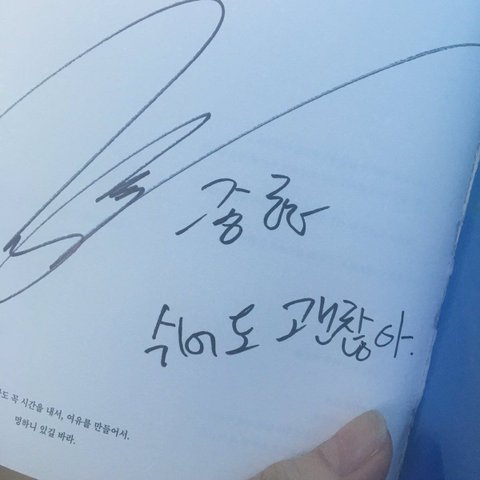 종현
쉬어도 괜찮아.
도 꼭 시간을 내서, 여유를 만들어서.
멍하니 있길 바라.